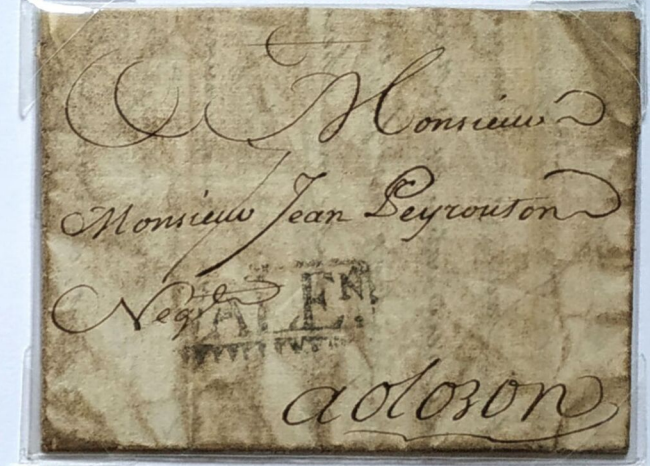 Monsieur
Monsieur Jean Peyrouton
Negt
a oloron